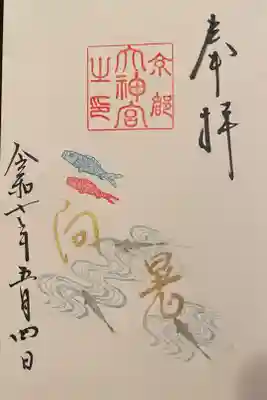 奉拝
京都
大神宮
之印
向
令和七年五月四日